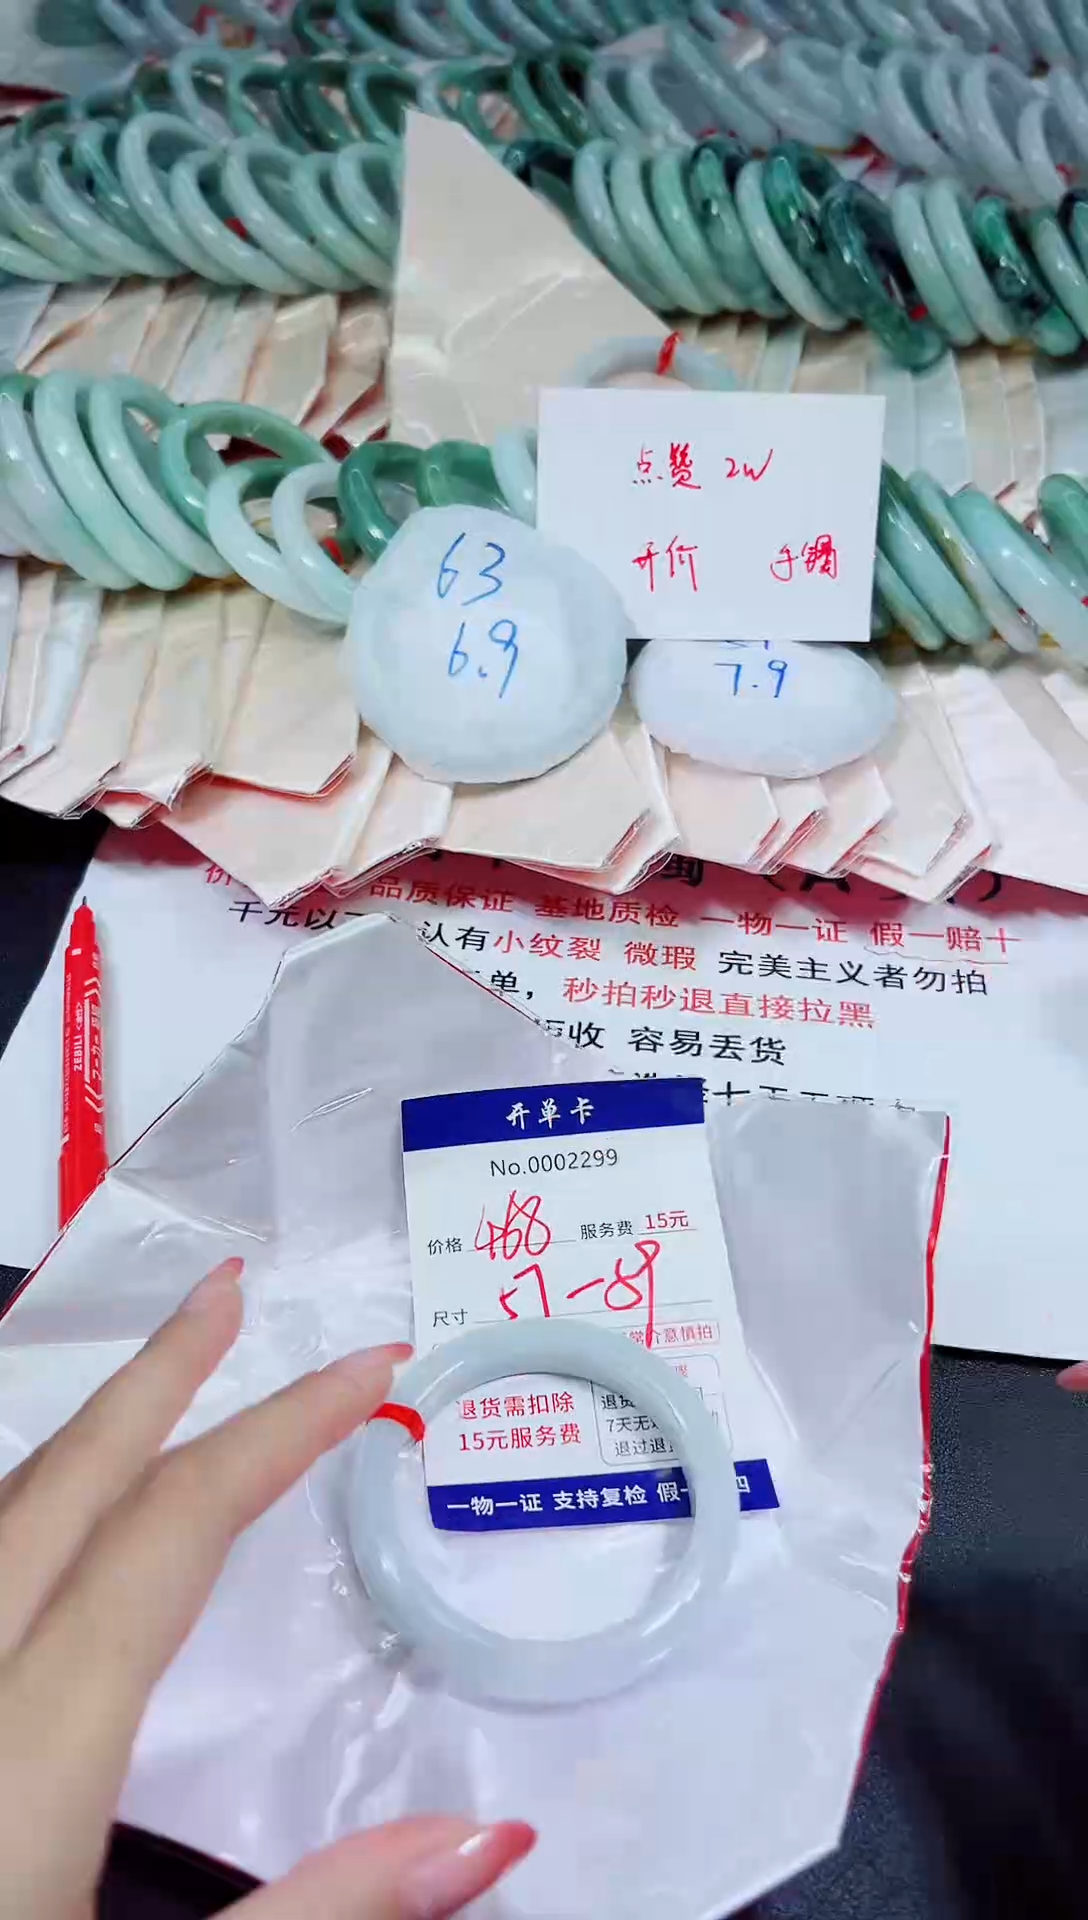 点赞 2W
开价 手镯
63
6.9
7.9
品质保证 基地质检 一物一证 假一赔十
千元以
认有小纹裂 微瑕 完美主义者勿拍
单，秒拍秒退直接拉黑
拒收 容易丢货
ZEBILI
开单卡
No.0002299
价格 468 服务费 15元
尺寸 57-59
介意慎拍
退货需扣除
15元服务费
退货
7天无
退过退
一物一证 支持复检 假一